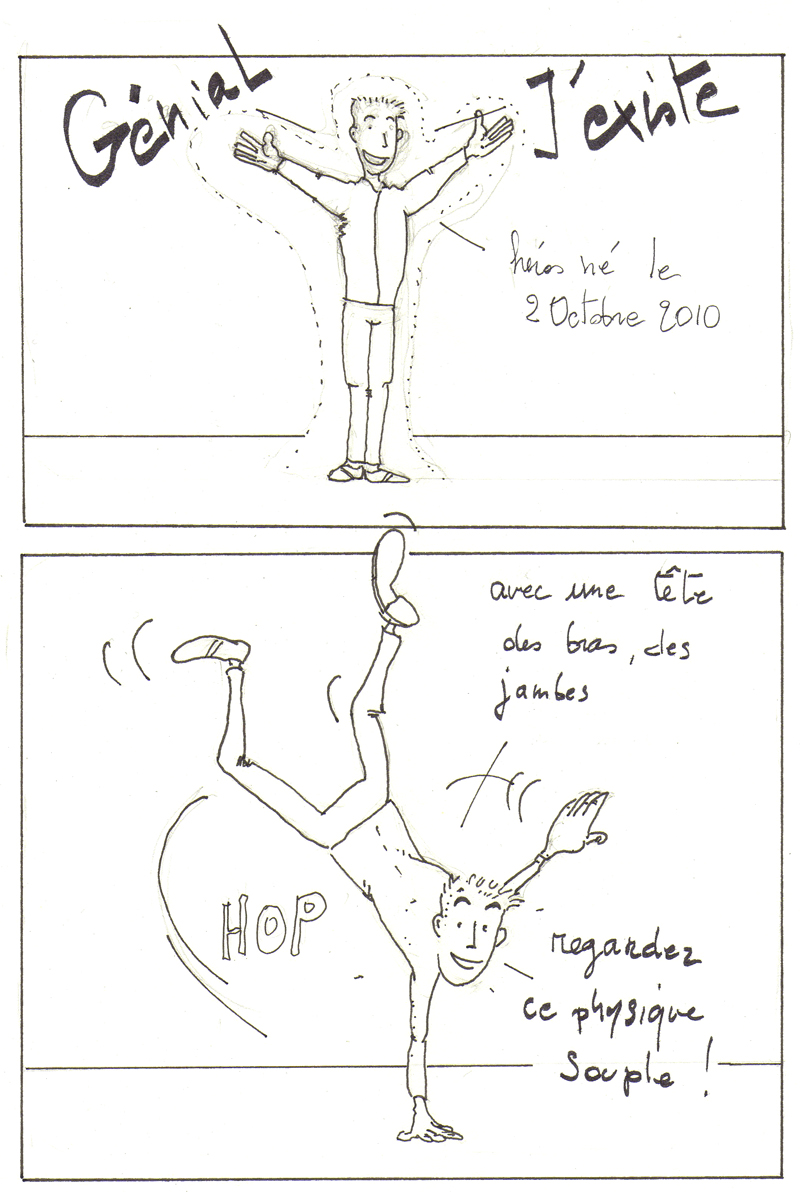 Génial J'existe
héros né le
2 Octobre 2010
avec une tête
des bras, des
jambes
HOP
regardez
ce physique
souple !